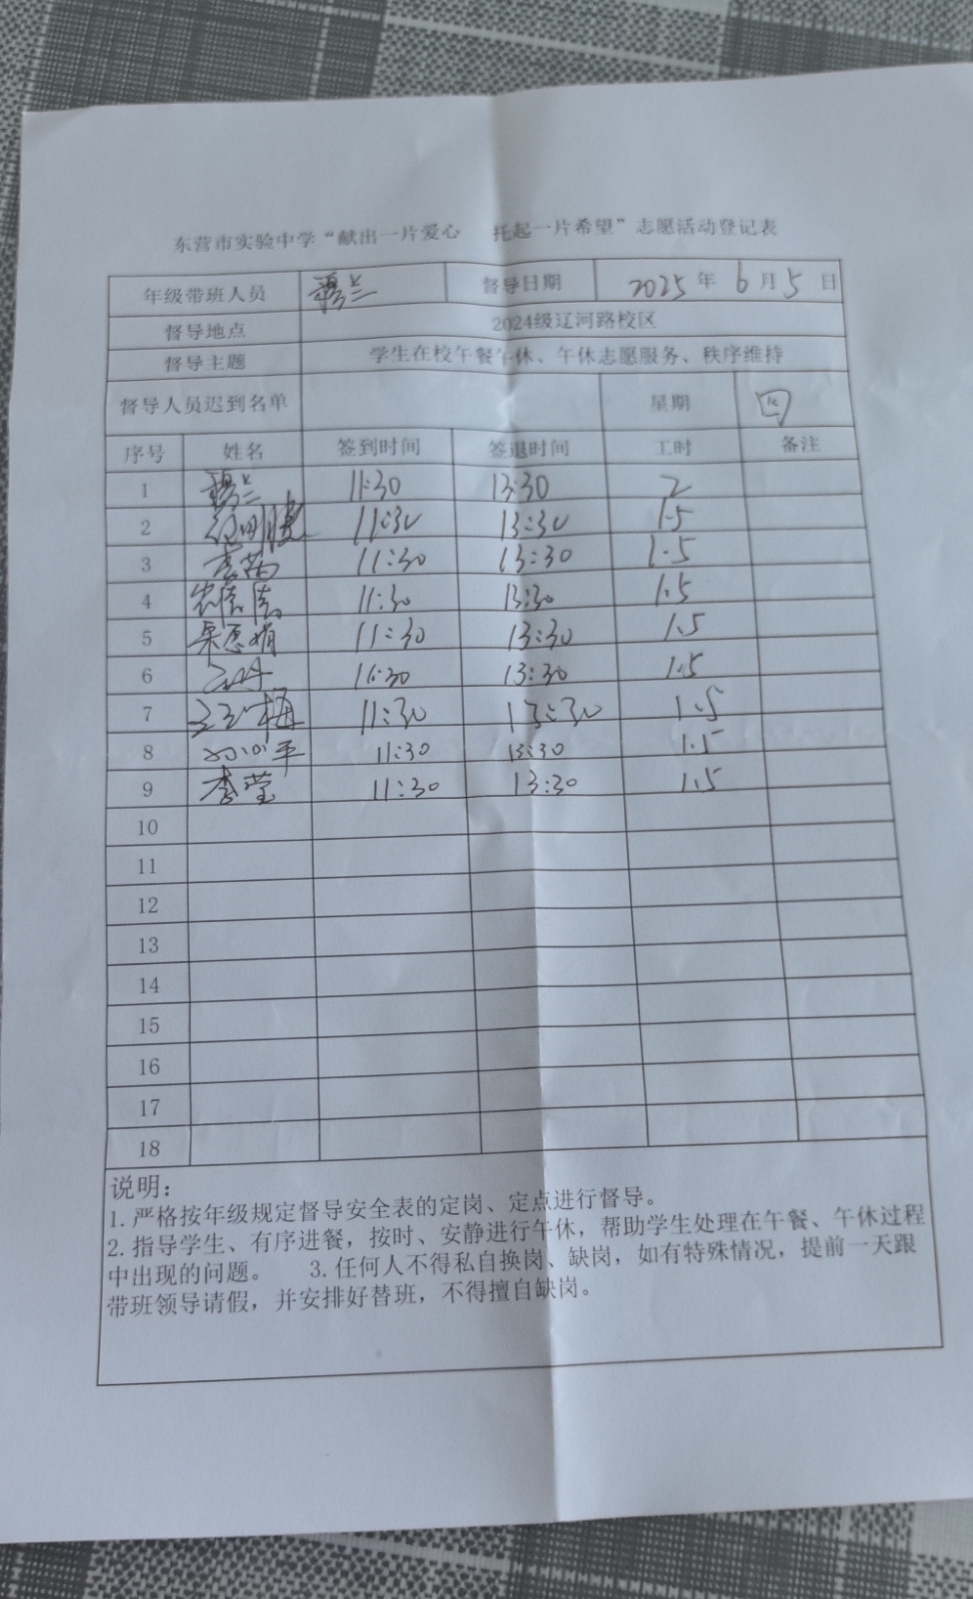 东营市实验中学“献出一片爱心 托起一片希望”志愿活动登记表
年级带班人员 穆兰 督导日期 2025年6月5日
督导地点 2024级辽河路校区
督导主题 学生在校午餐午休、午休志愿服务、秩序维持
督导人员迟到名单 星期 四
序号 姓名 签到时间 签退时间 工时 备注
1 穆兰 11:30 13:30 2
2 11:30 13:30 1.5
3 11:30 13:30 1.5
4 11:30 13:30 1.5
5 11:30 13:30 1.5
6 11:30 13:30 1.5
7 11:30 13:30 1.5
8 11:30 13:30 1.5
9 李莹 11:30 13:30 1.5
10
11
12
13
14
15
16
17
18
说明：
1. 严格按年级规定督导安全表的定岗、定点进行督导。
2. 指导学生、有序进餐，按时、安静进行午休，帮助学生处理在午餐、午休过程
中出现的问题。 3. 任何人不得私自换岗、缺岗，如有特殊情况，提前一天跟
带班领导请假，并安排好替班，不得擅自缺岗。